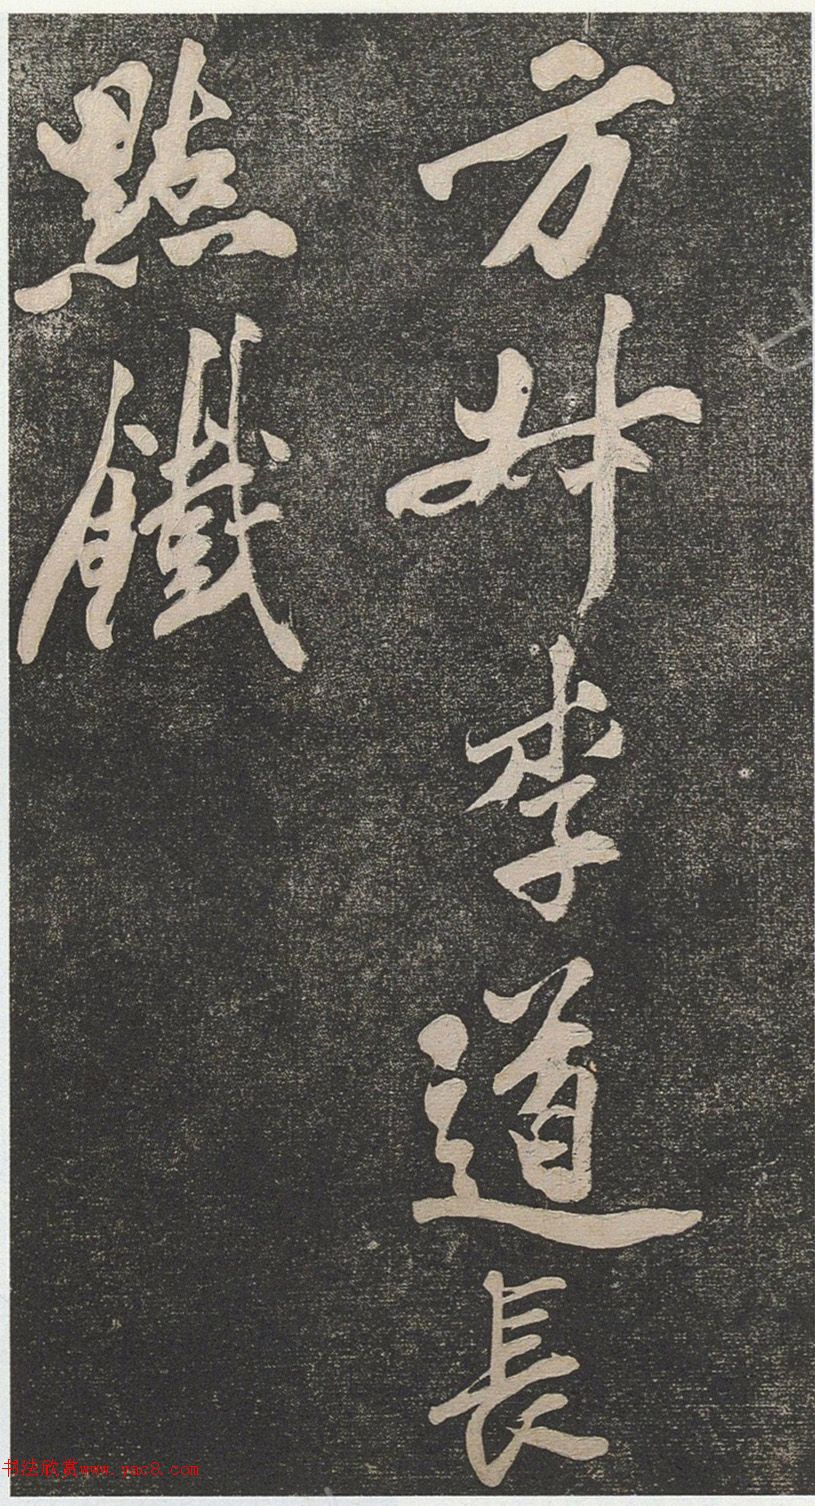 方李道長
點鐵
书法欣赏www.yac8.com